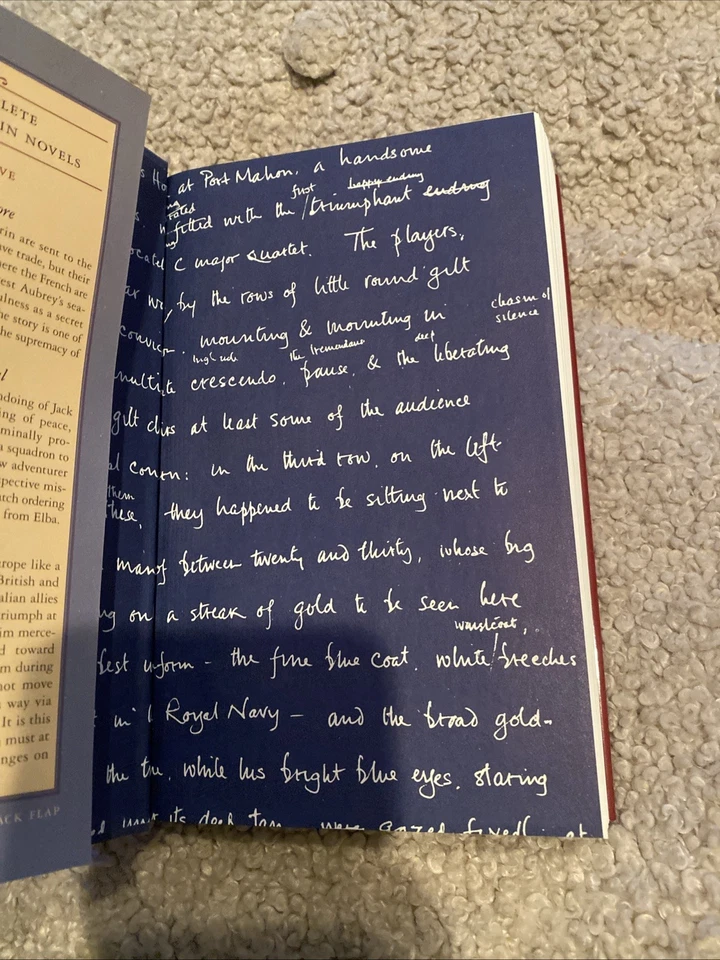 LETE
IN NOVELS
VE
ore
rin are sent to the
ve trade, but their
here the French are
est Aubrey's sea-
ulness as a secret
he story is one of
the supremacy of
l
ndoing of Jack
ing of peace,
minally pro-
a squadron to
w adventurer
spective mis-
tch ordering
from Elba.
rope like a
British and
alian allies
riumph at
im merce-
d toward
m during
not move
way via
It is this
must at
nges on
ACK FLAP
at Port Mahon, a handsome
first happy ending
filled with the triumphant ending
C major Quartet. The players,
by the rows of little round gilt
mounting & mounting in
chasm of
silence
the tremendous deep
crescendo, pause, & the liberating
gilt at least some of the audience
in the third row, on the left-
them
these, they happened to be sitting next to
man of between twenty and thirty, whose big
ng on a streak of gold to be seen here
waistcoat,
best uniform – the fine blue coat, white breeches
Royal Navy – and the broad gold-
the while his bright blue eyes, staring
its deep tan were gazed fixedly at